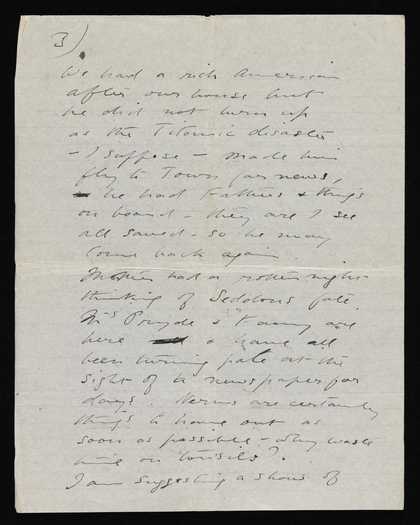 3)
We had a rich American
after our house but
he did not turn up
as the Titanic disaster
- I suppose - made him
fly to Town for news,
he had Fathers & things
on board - they are I see
all saved - so he may
come back again.
Mother had a rotten night
thinking of fate.
Mrs Pryde & Fanny are
here & have all
been turning pale at the
sight of a newspaper for
days. Nerves are certainly
things to have out as
soon as possible - why waste
time on tonsils?.
I am suggesting a show of